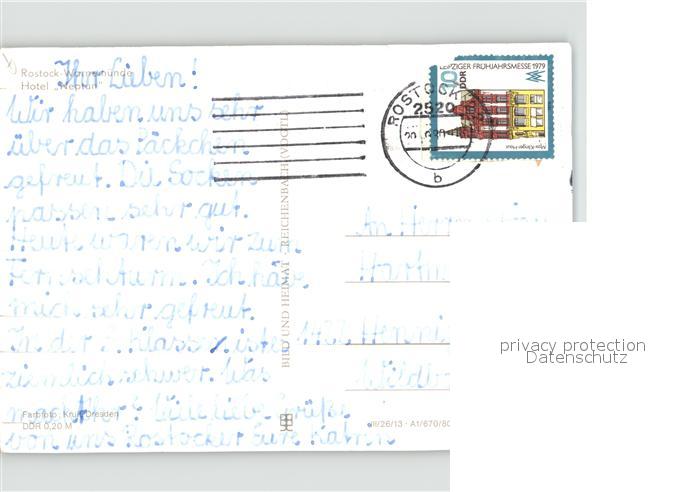 Rostock-Warnemünde
Hotel „Neptun"
Ihr Lieben!
Wir haben uns sehr
über das Päckchen
gefreut. Die Socken
passen sehr gut.
Heute waren wir zum
Fernsehturm. Ich habe
mich sehr gefreut.
In der 2. Klasse ist es
ziemlich schwer. Was
macht Ihr? Viele liebe Grüße
von uns Rostocker Eure Katrin
Farbfoto: Kruk, Dresden
DDR 0,20 M
BILD UND HEIMAT · REICHENBACH (VOGTL)
III/26/13 · A1/670/80
LEIPZIGER FRÜHJAHRSMESSE 1979
10
DDR
ROSTOCK
2520
b
An
1422
privacy protection
Datenschutz